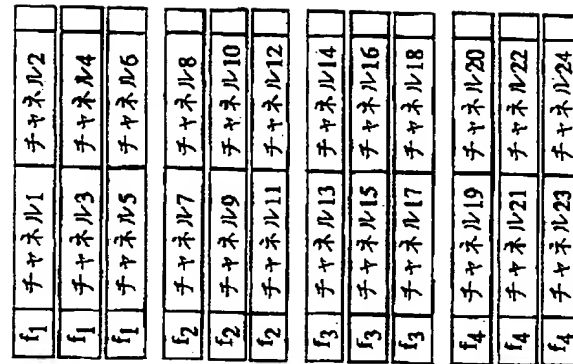 f1 チャネル1 チャネル2
f1 チャネル3 チャネル4
f1 チャネル5 チャネル6
f2 チャネル7 チャネル8
f2 チャネル9 チャネル10
f2 チャネル11 チャネル12
f3 チャネル13 チャネル14
f3 チャネル15 チャネル16
f3 チャネル17 チャネル18
f4 チャネル19 チャネル20
f4 チャネル21 チャネル22
f4 チャネル23 チャネル24